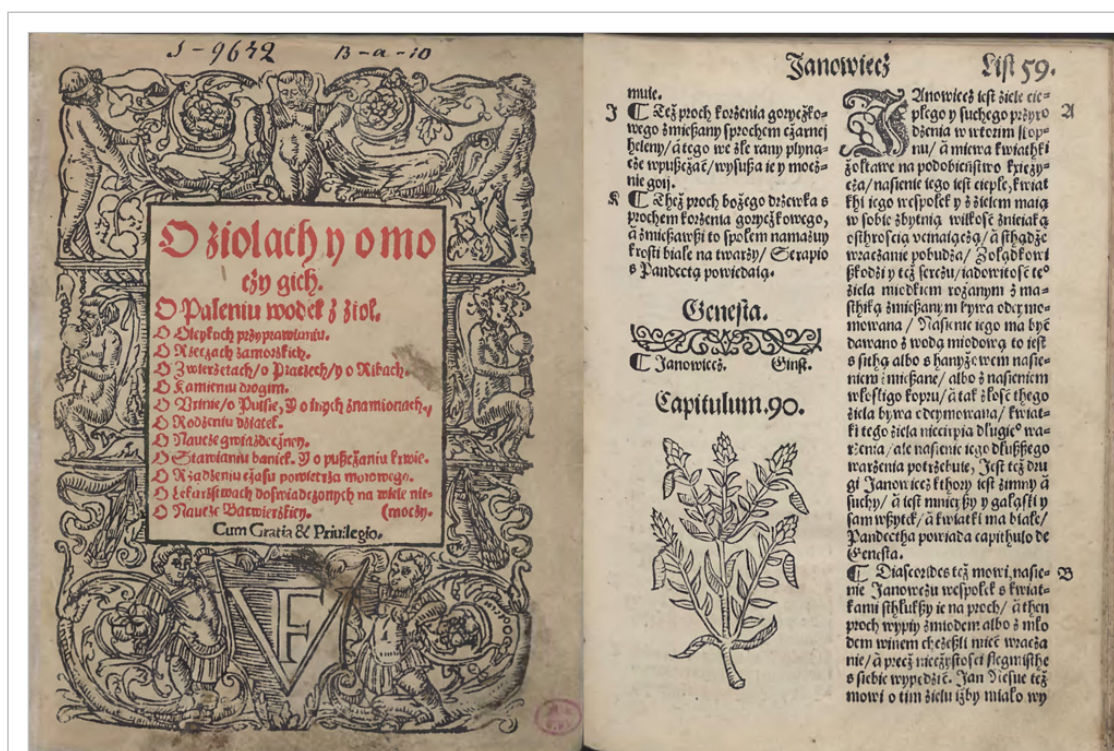 J – 9642 B – a – 10
O ziolach y o mo
czy gich.
O Paleniu wodek z zioł.
O Oleykach przyprawianiu.
O Rzeczach zamorskich.
O Zwierzetach/ o Ptaczech/ y o Ribach.
O Kamieniu drogim.
O Vrinie/ o Pulsie, Y o inych znamionach,
O Rodzeniu dziatek.
O Nauce gwiazdeczney.
O Stawianiu baniek. Y o pusczaniu krwie.
O Rządzeniu czasu powietrza morowego.
O Lekarstwach doswiadczonych na wiele nie-
O Nauce Barwierskiey. (moczy.
Cum Gratia & Priuilegio.
F
Janowiecz List 59.
muie.
J ¶ Też proch korzenia goryczko-
wego zmieszany sprochem czarnej
heleny/ á tego we złe rany płyną-
cze wpusczać/ wysusza ie y mocz-
nie goij.
K ¶ Theż proch bożego drzewka s
prochem korzenia goryczkowego,
á zmieszawszi to społem namazuy
krosti białe na twarzy/ Serapio
s Pandectą powiedaią.
Genesta.
¶ Janowiecz. Ginst.
Capitulum. 90.
JAnowiecz iest ziele cie- A
płego y suchego przyro
dzenia w wtorim stop-
nu/ á miewa kwiathki
żołtawe na podobieństwo księży-
cza/ nasienie iego iest ciepłe, kwiat
khi iego wespołek y z zielem maią
w sobie zbytnią wilkość znieiaką
osthroscią vcinaiączą/ á sthądże
wraczanie pobudza/ Zołądkowi
szkodzi y też serczu/ iadowitość teº
ziela miodkiem rożanym z ma-
sthiką zmieszanym bywa odeymo-
mowana/ Nasienie iego ma być
dawano z wodą miodową to iest
s sithą albo s hanyżowem nasie-
niem zmieszane/ albo z nasieniem
włoskigo kopru/ á tak złość thego
ziela bywa odeymowana/ kwiat-
ki tego ziela niecirpia długieº wa-
rzenia/ ale nasienie iego dłuszszego
warzenia potrzebuie, Jest też dru
gi Janowiecz kthory iest zimny á
suchy/ á iest mnieyszy y gałąski y
sam wszytek/ á kwiatki ma białe/
Pandectha powiada capithulo de
Genesta.
¶ Diascorides też mowi, nasie- B
nie Janowczu wespołek s kwiat-
kami sthłukszy ie na proch/ á then
proch wypiy zmiodem albo z mło
dem winem chczeszli mieć wracza
nie/ á precz nieczystości flegmisthe
s siebie wypędzić. Jan Mesue też
mowi o tim zielu iżby miało wy